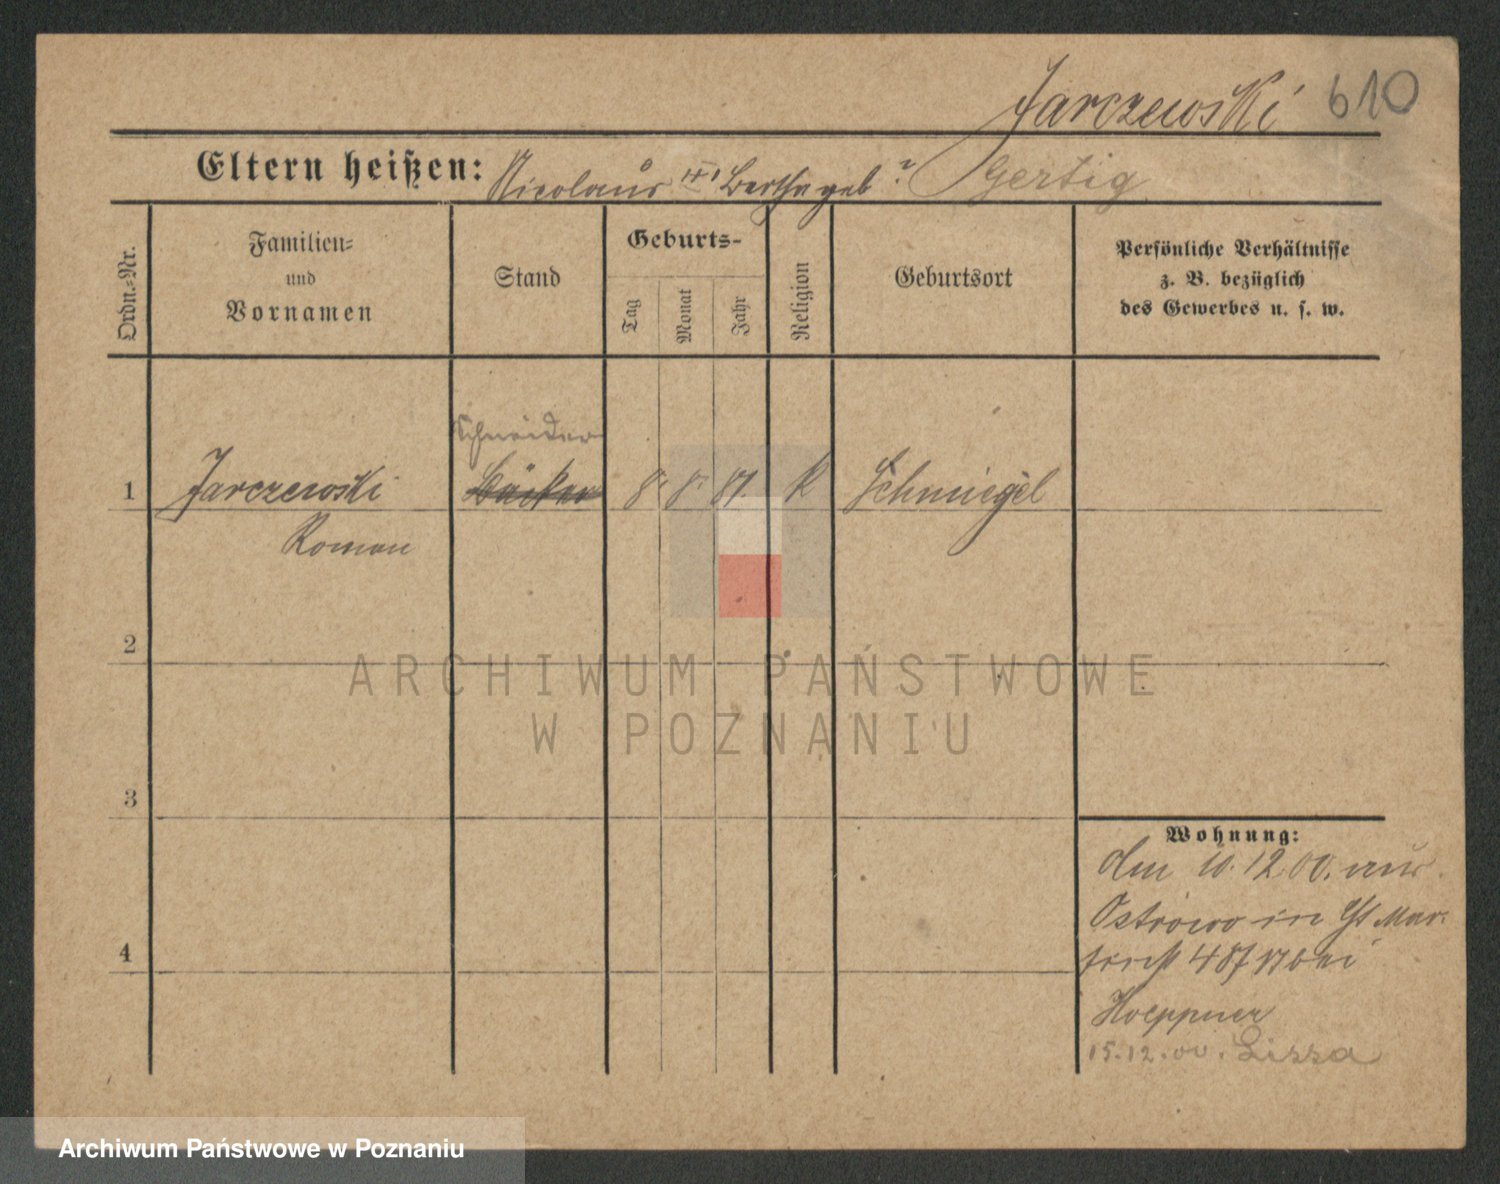 Jarczewski 610
Eltern heißen: Nicolaus Bertha geb ? Gertig
Ordn.-Nr.
Familien-
und
Vornamen
Stand
Geburts-
Tag
Monat
Jahr
Religion
Geburtsort
Persönliche Verhältnisse
z. B. bezüglich
des Gewerbes u. s. w.
Schneider
1 Jarczewski Bäcker 8. 8. 81. K Schmiegel
Roman
2
ARCHIWUM PAŃSTWOWE
W POZNANIU
3
Wohnung:
den 10.12.00. aus
Ostrowo in St Mar-
4
bei
Hoeppner
15.12.00. Lissa
Archiwum Państwowe w Poznaniu